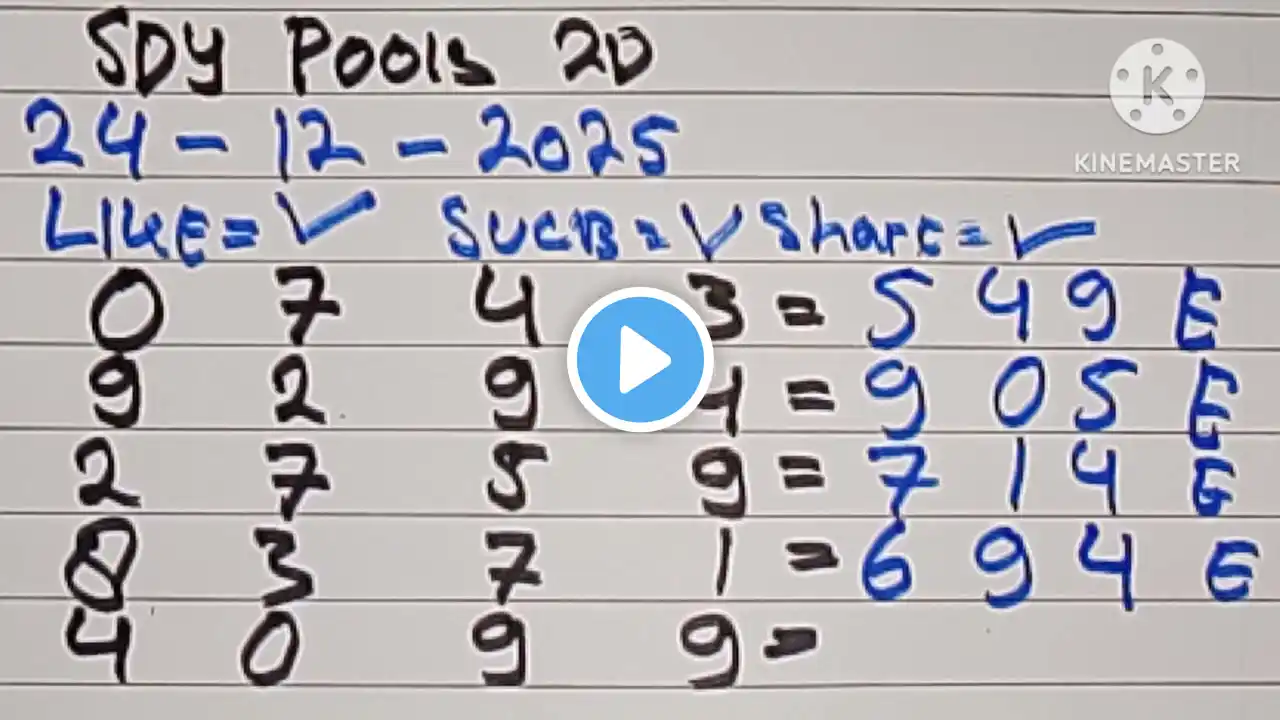 SDY Pools 2D
K
KINEMASTER
24 - 12 - 2025
LIKE = ✓ SUCB = ✓ Share = ✓
0 7 4 3 = 5 4 9 E
9 2 9 4 = 9 0 5 E
2 7 5 9 = 7 1 4 E
8 3 7 1 = 6 9 4 E
4 0 9 9 =